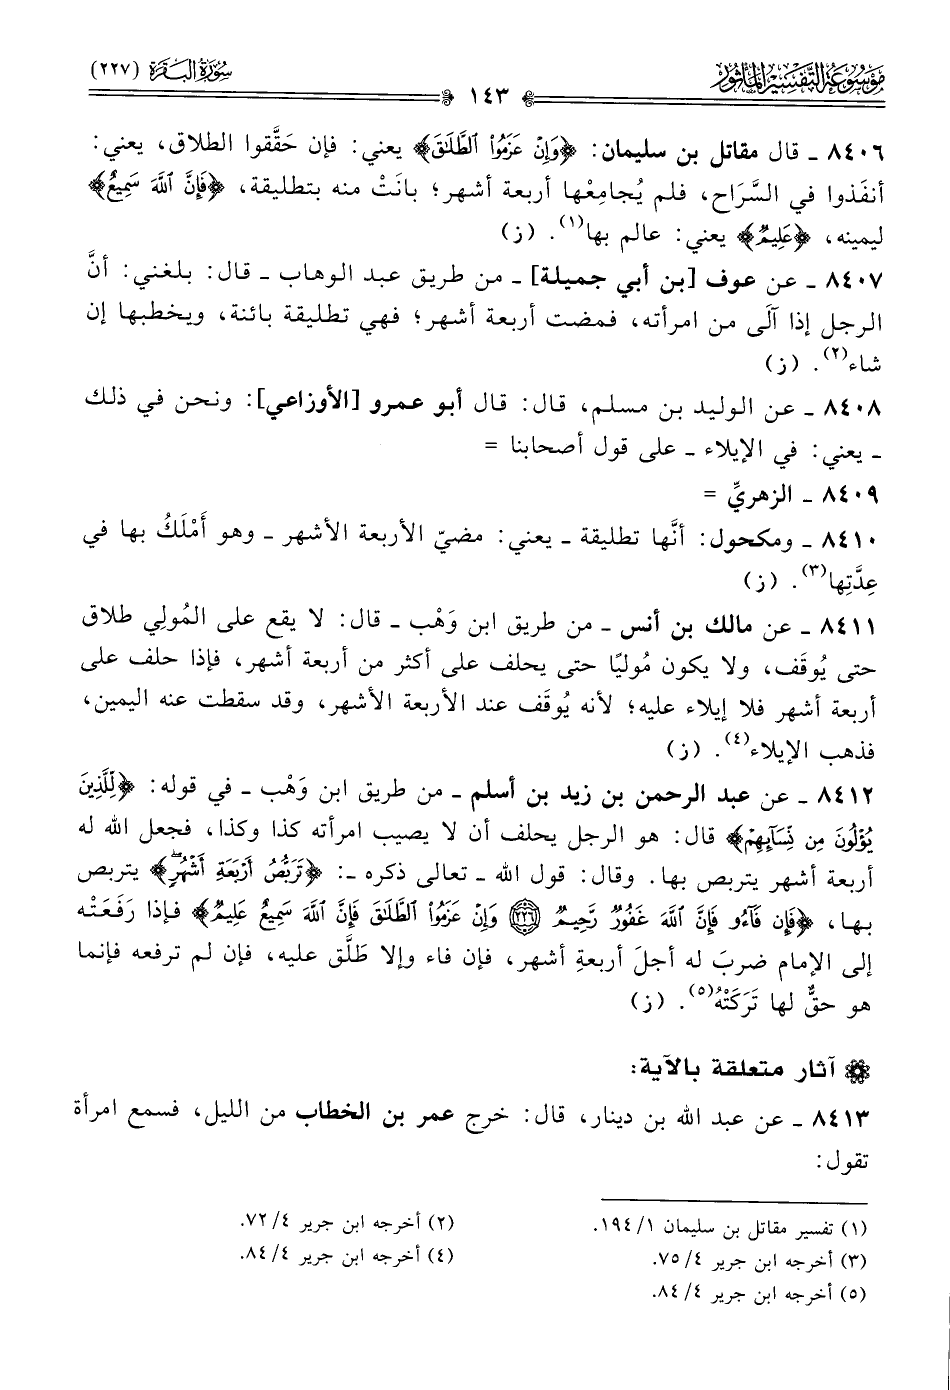 مَوْسُوعَةُ التَّفْسِيرِ المَأْثُورِ
١٤٣
سُورَةُ البَقَرَةِ (٢٢٧)
٨٤٠٦ ـ قال مقاتل بن سليمان: ﴿وَإِنْ عَزَمُوا۟ ٱلطَّلَـٰقَ﴾ يعني: فإن حَقَّقوا الطلاق، يعني:
أنفَذوا في السَّرَاح، فلم يُجامِعْها أربعة أشهر؛ بانَتْ منه بتطليقة، ﴿فَإِنَّ ٱللَّهَ سَمِيعٌ﴾
ليمينه، ﴿عَلِيمٌ﴾ يعني: عالم بها(١). (ز)
٨٤٠٧ ـ عن عوف [بن أبي جميلة] ـ من طريق عبد الوهاب ـ قال: بلغني: أنَّ
الرجل إذا آلَى من امرأته، فمضت أربعة أشهر؛ فهي تطليقة بائنة، ويخطبها إن
شاء(٢). (ز)
٨٤٠٨ ـ عن الوليد بن مسلم، قال: قال أبو عمرو [الأوزاعي]: ونحن في ذلك
ـ يعني: في الإيلاء ـ على قول أصحابنا =
٨٤٠٩ ـ الزهريِّ =
٨٤١٠ ـ ومكحول: أنَّها تطليقة ـ يعني: مضيّ الأربعة الأشهر ـ وهو أَمْلَكُ بها في
عِدَّتِها(٣). (ز)
٨٤١١ ـ عن مالك بن أنس ـ من طريق ابن وَهْب ـ قال: لا يقع على المُولِي طلاق
حتى يُوقَف، ولا يكون مُوليًا حتى يحلف على أكثر من أربعة أشهر، فإذا حلف على
أربعة أشهر فلا إيلاء عليه؛ لأنه يُوقَف عند الأربعة الأشهر، وقد سقطت عنه اليمين،
فذهب الإيلاء(٤). (ز)
٨٤١٢ ـ عن عبد الرحمن بن زيد بن أسلم ـ من طريق ابن وَهْب ـ في قوله: ﴿لِّلَّذِينَ
يُؤْلُونَ مِن نِّسَآئِهِمْ﴾ قال: هو الرجل يحلف أن لا يصيب امرأته كذا وكذا، فجعل الله له
أربعة أشهر يتربص بها. وقال: قول الله ـ تعالى ذكره ـ: ﴿تَرَبُّصُ أَرْبَعَةِ أَشْهُرٍ ۖ﴾ يتربص
بها، ﴿فَإِن فَآءُو فَإِنَّ ٱللَّهَ غَفُورٌ رَّحِيمٌ ٢٢٦ وَإِنْ عَزَمُوا۟ ٱلطَّلَـٰقَ فَإِنَّ ٱللَّهَ سَمِيعٌ عَلِيمٌ﴾ فإذا رَفَعَتْه
إلى الإمام ضربَ له أجلَ أربعةِ أشهر، فإن فاء وإلا طَلَّق عليه، فإن لم ترفعه فإنما
هو حقٌّ لها تَرَكَتْهُ(٥). (ز)
آثار متعلقة بالآية:
٨٤١٣ ـ عن عبد الله بن دينار، قال: خرج عمر بن الخطاب من الليل، فسمع امرأة
تقول:
(١) تفسير مقاتل بن سليمان ١/ ١٩٤.
(٢) أخرجه ابن جرير ٤/ ٧٢.
(٣) أخرجه ابن جرير ٤/ ٧٥.
(٤) أخرجه ابن جرير ٤/ ٨٤.
(٥) أخرجه ابن جرير ٤/ ٨٤.